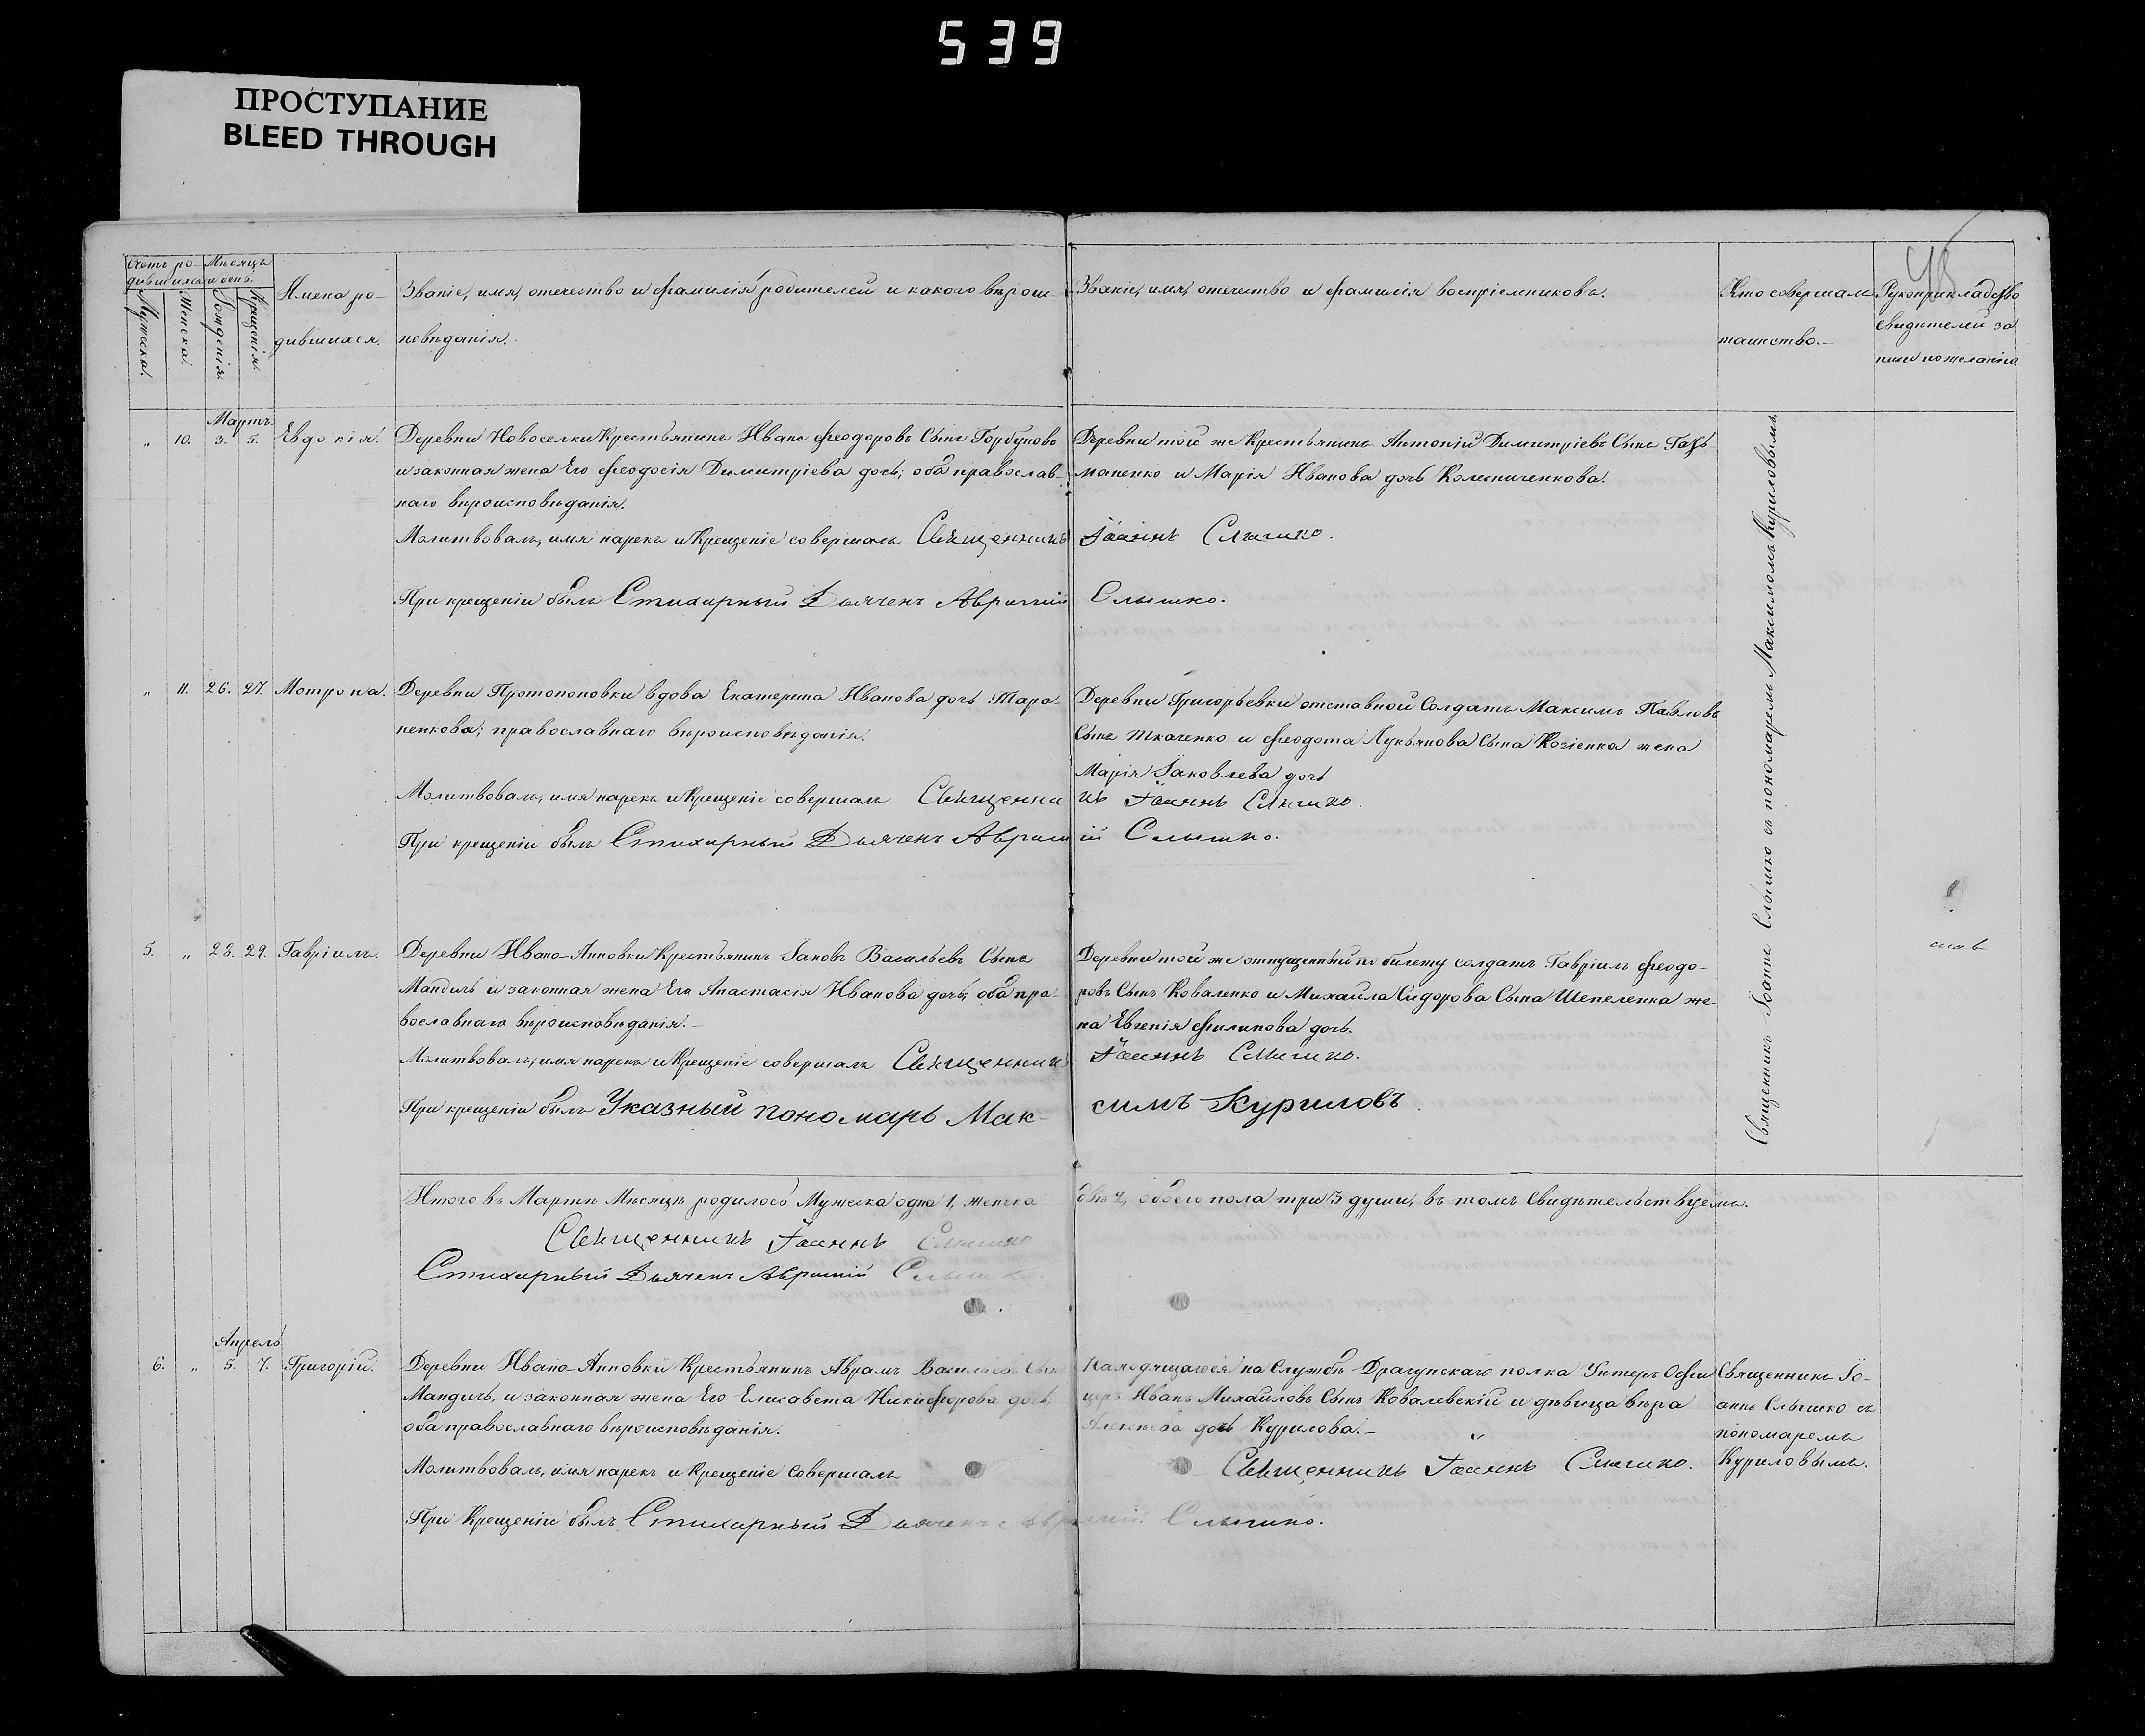 539
ПРОСТУПАНИЕ
BLEED THROUGH
Счетъ ро-
дившихся
Мѣсяцъ
и день.
Мужска.
Женска.
Рожденія.
Крещенія.
Имена ро-
дившихся.
Званіе, имя, отечество и фамилія родителей и какого вѣроис-
повѣданія.
Званіе, имя, отечество и фамилія воспріемниковъ.
Кто совершалъ
таинство.
Рукоприкладство
свидѣтелей за-
писи по желанію.
Мартъ.
„ 10. 3. 5. Евдокія.
Деревни Новоселки Крестьянинъ Иванъ Феодоровъ Сынъ Горбуновъ
и законная жена Его Феодосія Димитріева дочь; оба православ-
наго вѣроисповѣданія.
Молитвовалъ, имя нарекъ и Крещеніе совершалъ Священникъ Іоаннъ Слышко.
При крещеніи былъ Стихарный Дьячекъ Аврамій Слышко.
Деревни той же Крестьянинъ Антоній Димитріевъ Сынъ
маненко и Марія Иванова дочь Колесниченкова.
„ 11. 26. 27. Мотрона.
Деревни Протопоповки вдова Екатерина Иванова дочь Тара-
ненкова; православнаго вѣроисповѣданія.
Молитвовалъ, имя нарекъ и Крещеніе совершалъ Священникъ Іоаннъ Слышко.
При крещеніи былъ Стихарный Дьячекъ Аврамій Слышко.
Деревни Григорьевки отставной Солдатъ Максимъ Павловъ
Сынъ Ткаченко и Феодота Лукьянова Сына Козіенка жена
Марія Іаковлева дочь
5. „ 28. 29. Гавріилъ.
Деревни Ивано-Анновки Крестьянинъ Іаковъ Васильевъ Сынъ
Мандичъ и законная жена Его Анастасія Иванова дочь; оба пра-
вославнаго вѣроисповѣданія.
Молитвовалъ, имя нарекъ и Крещеніе совершалъ Священникъ Іоаннъ Слышко.
При крещеніи былъ Указный пономарь Мак-симъ Куриловъ.
Деревни той же отпущенный по билету солдатъ Гавріилъ Феодо-
ровъ Сынъ Коваленко и Михаила Сидорова Сына Шепеленка же-
на Евгенія Филипова дочь.
Священникъ Іоаннъ Слышко съ пономаремъ Максимомъ Куриловымъ.
Итого въ Мартѣ Мѣсяцѣ родилось Мужска одна 1, женска двѣ 2, обоего пола три 3 души, въ томъ Свидѣтельствуемъ.
Священникъ Іоаннъ Слышко
Стихарный Дьячекъ Аврамій Слышко
Апрель
6. „ 5. 7. Григорій.
Деревни Ивано-Анновки Крестьянинъ Аврамъ Васильевъ Сынъ
Мандичъ, и законная жена Его Елисавета Никифорова дочь;
оба православнаго вѣроисповѣданія.
Молитвовалъ, имя нарекъ и Крещеніе Совершалъ Священникъ Іоаннъ Слышко.
При Крещеніи былъ Стихарный Дьячекъ Аврамій Слышко.
Находящагося на Службѣ Драгунскаго полка Унтеръ Офи-
церъ Иванъ Михайловъ Сынъ Ковалевскій и дѣвица Вѣра
Алексѣева дочь Курилова.
Священникъ Іо-
аннъ Слышко съ
пономаремъ
Куриловымъ.